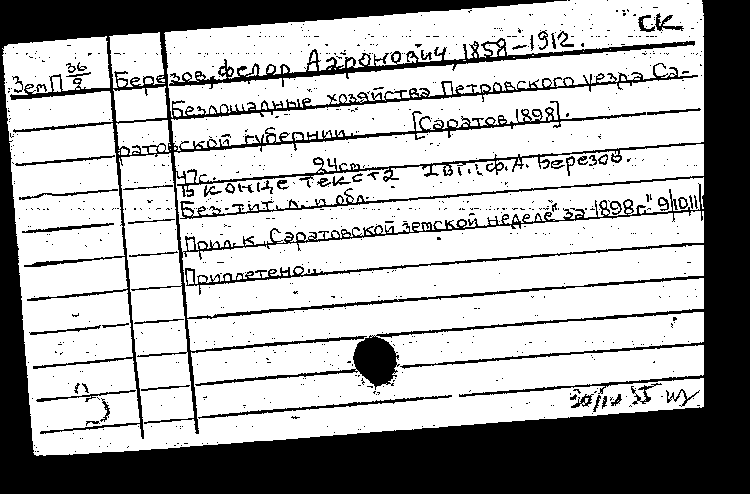 СК
ЗемП 36/8 Березов, Федор Ааронович, 1858-1912.
Безлошадные хозяйства Петровского уезда Са-
ратовской губернии. [Саратов, 1898].
47с. 24см.
В конце текста авт.: Ф.А. Березов.
Без тит. л. и обл.
Прил. к „Саратовской земской неделе" за 1898г. 9|10,11|
Приплетено.
30/IV 55